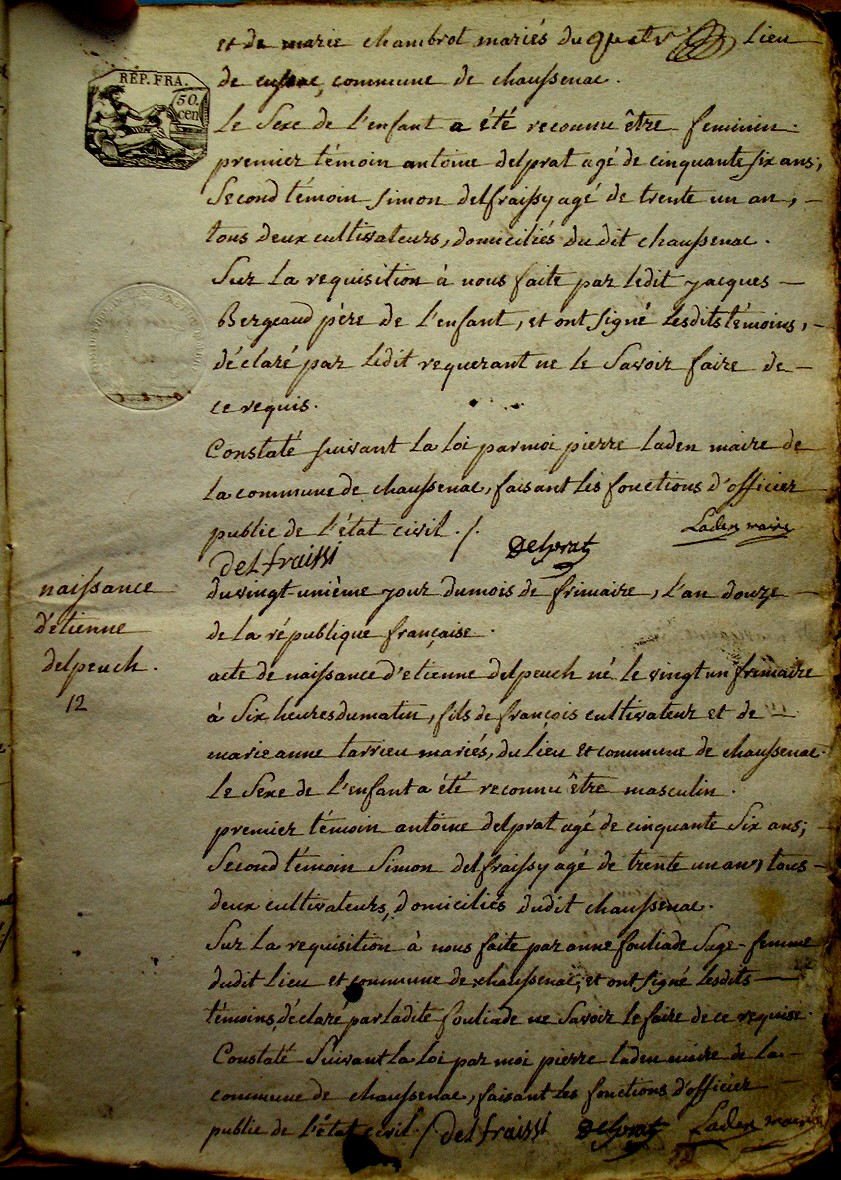 et de marie chambrot mariés du lieu
de commune de chaussenac.
REP. FRA.
50.
cen
Le Sexe de l'enfant a été reconnu être feminin.
premier témoin antoine delprat agé de cinquante six ans;
Second témoin simon delfraissy agé de trente un an,
tous deux cultivateurs, domiciliés du dit chaussenac.
Sur la requisition à nous faite par ledit jacques
Bergeaud père de l'enfant, et ont signé lesdits témoins,
déclaré par ledit requerant ne le Savoir faire de
ce requis.
Constaté suivant la loi par moi pierre laden maire de
la commune de chaussenac, faisant les fonctions d'officier
public de l'état civil ./.
Laden maire
delfraissi
Delprat
naissance
d'etienne
delpeuch.
12
du vingt-unième jour du mois de frimaire, l'an douze
de la république française.
acte de naissance d'etienne delpeuch né le vingt un frimaire
à Six heures du matin, fils de françois cultivateur et de
marie anne tarrieu mariés, du lieu et commune de chaussenac.
le Sexe de l'enfant a été reconnu être masculin.
premier témoin antoine delprat agé de cinquante Six ans;
Second témoin Simon delfraissy agé de trente un an, tous
deux cultivateurs, domiciliés dudit chaussenac.
Sur la requisition à nous faite par anne fouliade Sage-femme
dudit lieu et commune de chaussenac, et ont signé lesdits
témoins, déclaré par ladite fouliade ne Savoir le faire de ce requise.
Constaté Suivant la loi par moi pierre laden maire de la
commune de chaussenac, faisant les fonctions d'officier
public de l'état civil ./. delfraissi Delprat Laden maire